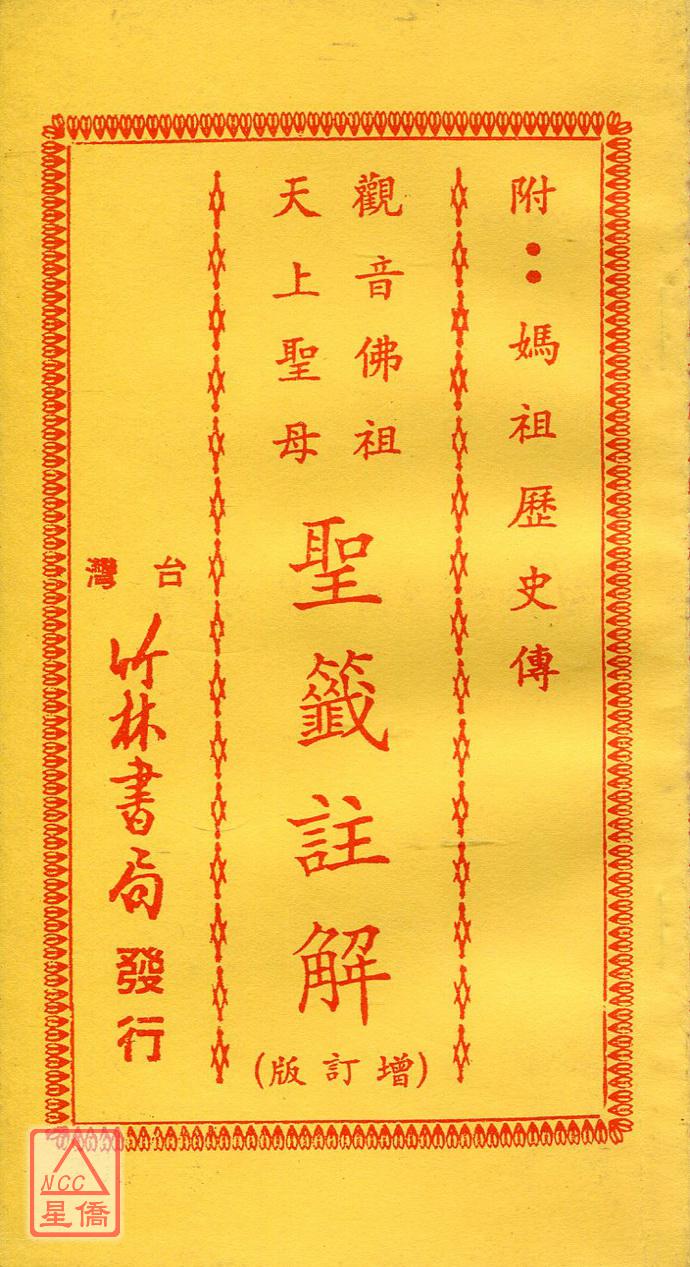 附：媽祖歷史傳
觀音佛祖
天上聖母
聖籤註解
(增訂版)
台灣
竹林書局發行
NCC
星僑